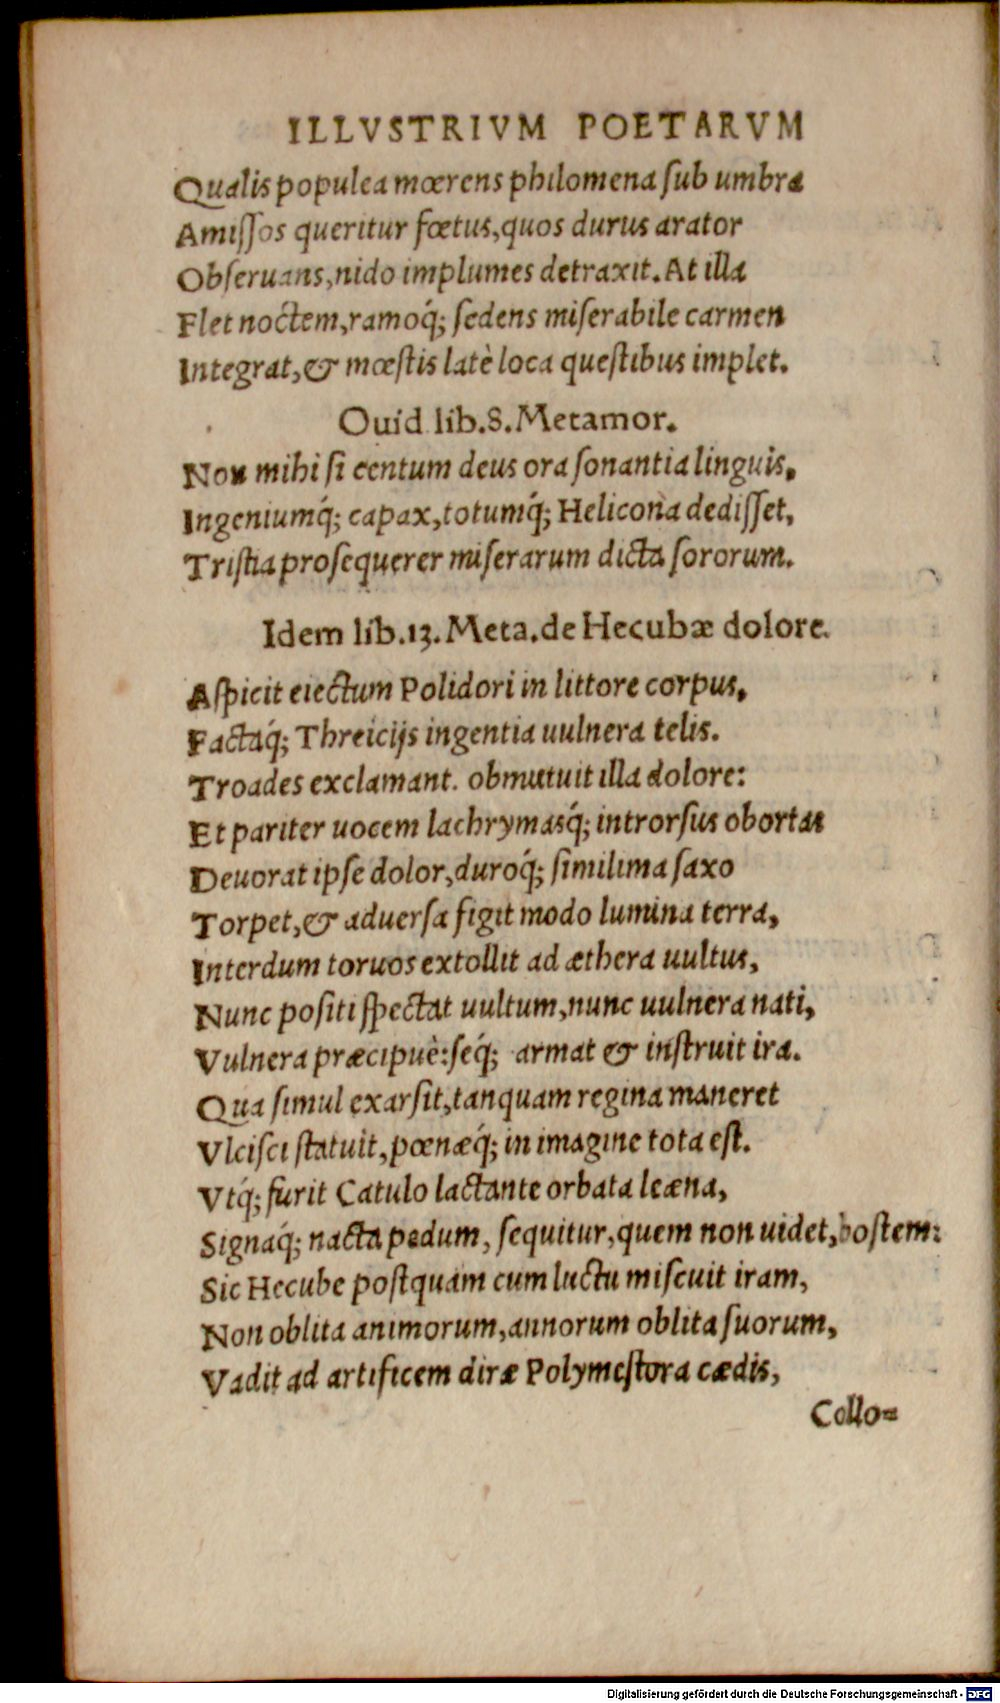 ILLVSTRIVM POETARVM
Qualis populea mœrens philomena ſub umbra
Amiſſos queritur fœtus, quos durus arator
Obſeruans, nido implumes detraxit. At illa
Flet noctem, ramoq́; ſedens miſerabile carmen
Integrat, & mœſtis latè loca queſtibus implet.
Ouid lib. 8. Metamor.
Non mihi ſi centum deus ora ſonantia linguis,
Ingeniumq́; capax, totumq́; Helicona dediſſet,
Triſtia proſequerer miſerarum dicta ſororum.
Idem lib. 13. Meta. de Hecubæ dolore.
Aſpicit eiectum Polidori in littore corpus,
Factaq́; Threicijs ingentia uulnera telis.
Troades exclamant. obmutuit illa dolore:
Et pariter uocem lachrymasq́; introrſus obortas
Deuorat ipſe dolor, duroq́; ſimilima ſaxo
Torpet, & aduerſa figit modo lumina terra,
Interdum toruos extollit ad æthera uultus,
Nunc poſiti ſpectat uultum, nunc uulnera nati,
Vulnera præcipuè: ſeq́; armat & inſtruit ira.
Qua ſimul exarſit, tanquam regina maneret
Vlciſci ſtatuit, pœnæq́; in imagine tota eſt.
Vtq́; furit Catulo lactante orbata leæna,
Signaq́; nacta pedum, ſequitur, quem non uidet, hoſtem:
Sic Hecube poſtquam cum luctu miſcuit iram,
Non oblita animorum, annorum oblita ſuorum,
Vadit ad artificem diræ Polymeſtora cædis,
Collo=
Digitalisierung gefördert durch die Deutsche Forschungsgemeinschaft - DFG